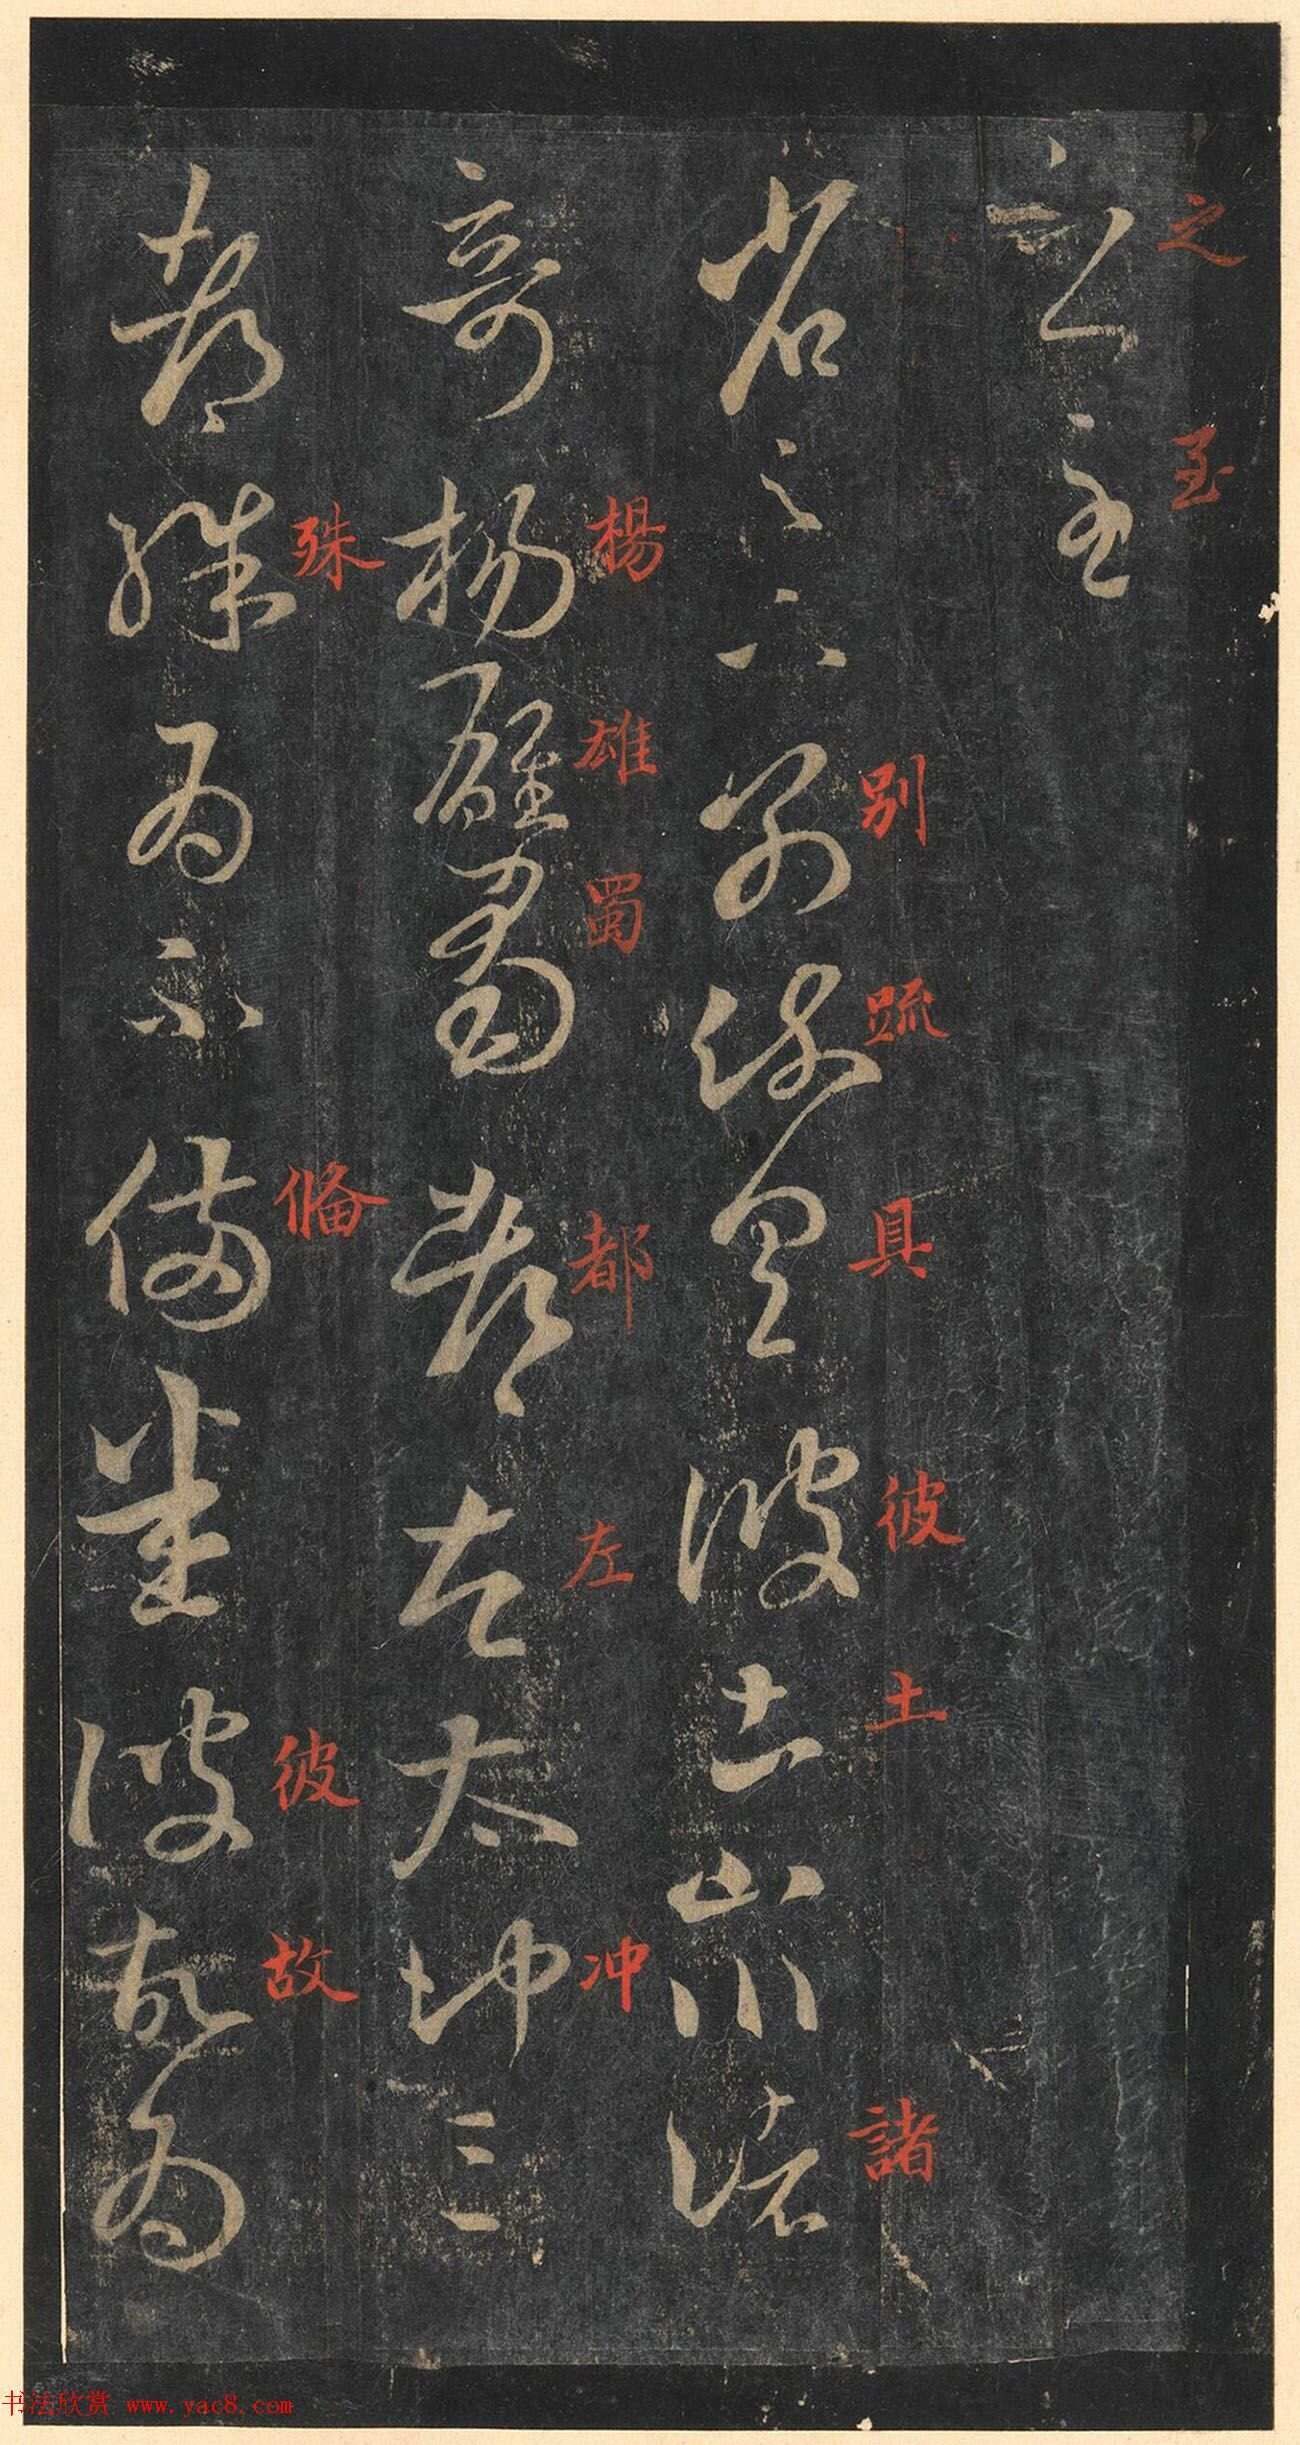 之至
之至
別䟽具彼土諸
省足下別疏具彼土山川諸
楊雄蜀都左冲
奇楊雄蜀都左太冲三
殊俻彼故
都殊為不備悉彼故為
书法欣赏 www.yac8.com